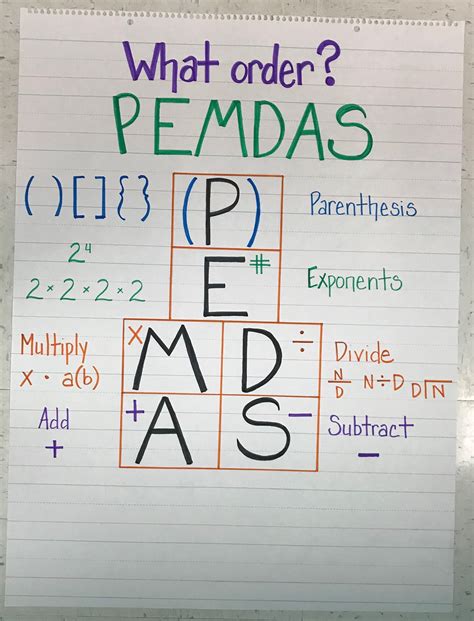 What order?
PEMDAS
( ) [ ] { } (P) Parenthesis
2⁴
2 × 2 × 2 × 2
E # Exponents
Multiply × M D ÷ Divide
x · a(b) N/D N÷D D⟌N
Add + A S − Subtract
+ −